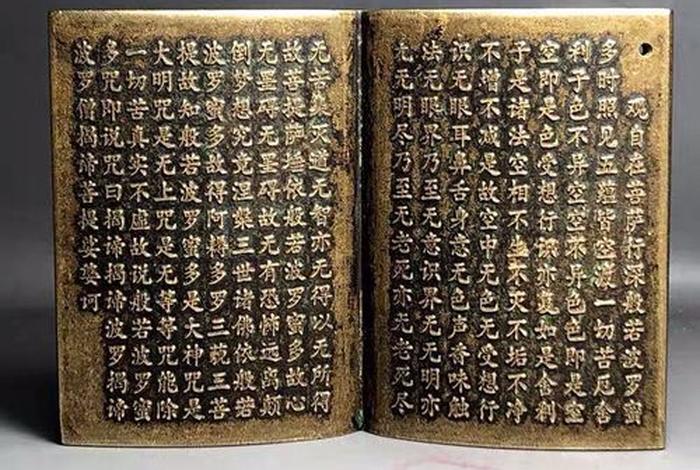 观自在菩萨行深般若波罗蜜
多时照见五蕴皆空渡一切苦厄舍
利子色不异空空不异色色即是空
空即是色受想行识亦复如是舍利
子是诸法空相不生不灭不垢不净
不增不减是故空中无色无受想行
识无眼耳鼻舌身意无色声香味触
法无眼界乃至无意识界无无明亦
无无明尽乃至无老死亦无老死尽
无苦集灭道无智亦无得以无所得
故菩提萨埵依般若波罗蜜多故心
无墨碍无墨碍故无有恐怖远离颠
倒梦想究竟涅槃三世诸佛依般若
波罗蜜多故得阿耨多罗三藐三菩
提故知般若波罗蜜多是大神咒是
大明咒是无上咒是无等等咒能除
一切苦真实不虚故说般若波罗蜜
多咒即说咒曰揭谛揭谛波罗揭谛
波罗僧揭谛菩提娑婆诃